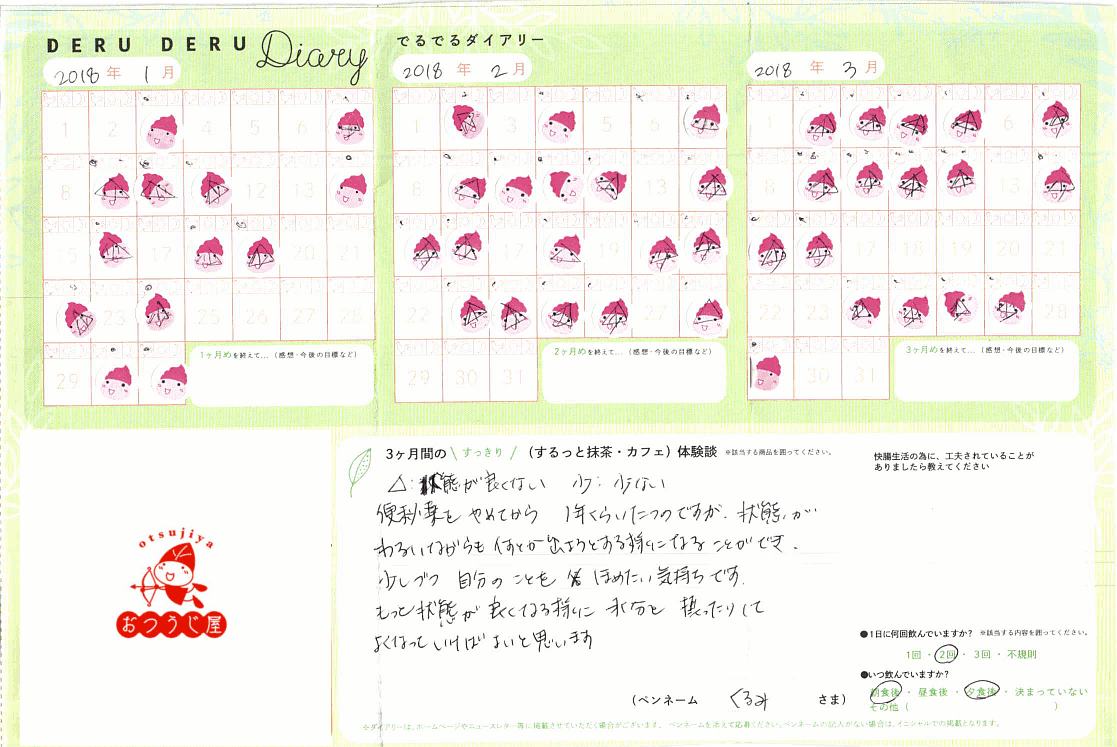 DERU DERU Diary でるでるダイアリー
2018年 1月
1 2 4 5 6
8 12 13
15 17 20 21
23 25 26 27 28
29
1ヶ月めを終えて…（感想・今後の目標など）
2018年 2月
1 3 5 6
8 13
17 19
22 27
29 30 31
2ヶ月めを終えて…（感想・今後の目標など）
2018年 3月
1 6
8 13
17 18 19 20 21
22 23 28
30 31
3ヶ月めを終えて…（感想・今後の目標など）
otsujiya
おつうじ屋
3ヶ月間の\すっきり/（するっと抹茶・カフェ）体験談 ※該当する商品を囲ってください。
△：状態が良くない 少：少ない
便秘薬を やめてから 1年くらいたつのですが、状態が
わるいながらも 何とか出ようとする様になることができ、
少しづつ 自分のことを ほめたい気持ちです。
もっと状態が 良くなる様に 水分を 摂ったりして
よくなっていけばよいと思います
（ペンネーム くるみ さま）
快腸生活の為に、工夫されていることが
ありましたら教えてください
●1日に何回飲んでいますか？ ※該当する内容を囲ってください。
1回・2回・3回・不規則
●いつ飲んでいますか？
朝食後・昼食後・夕食後・決まっていない
その他（ ）
※ダイアリーは、ホームページやニュースレター等に掲載させていただく場合がございます。ペンネームを添えて応募ください。ペンネームの記入がない場合は、イニシャルでの掲載となります。